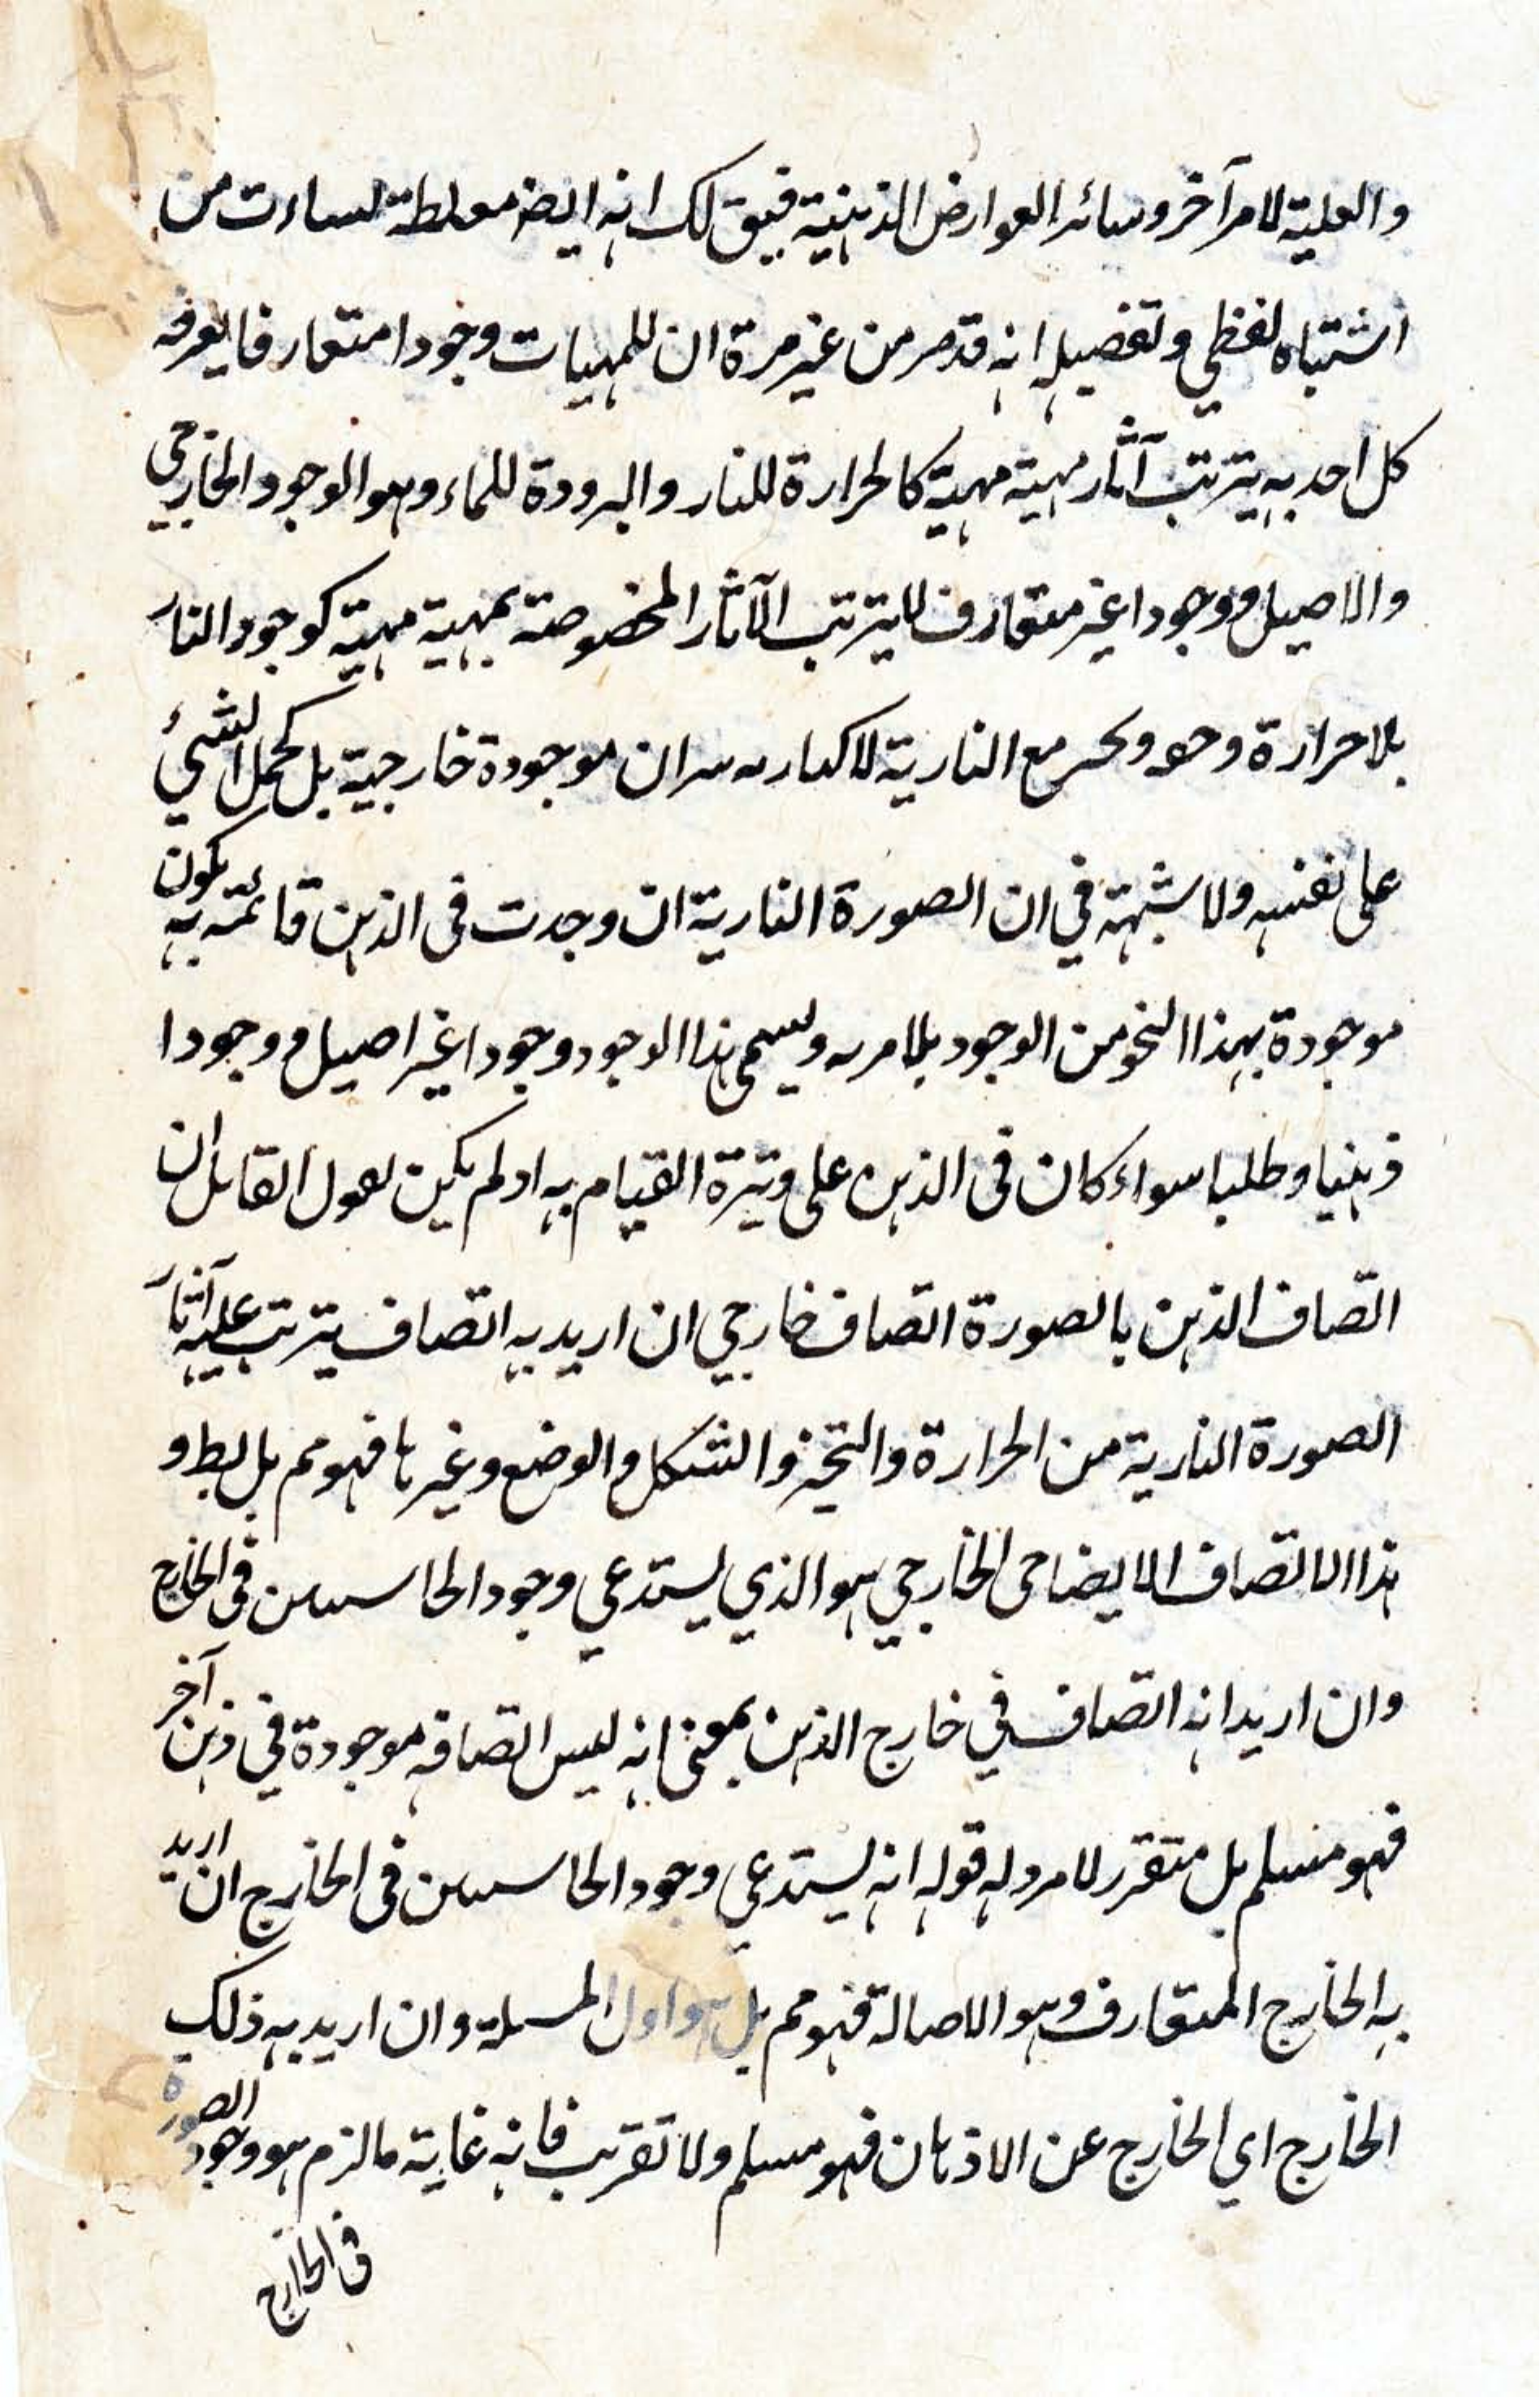 والعلية لامر آخر وسائر العوارض الذهنية فيق لك انه ايضر مغلطة نساءت من
اشتباه لفظي وتفصيله انه قد مر من غير مرة ان للمهيات وجودا متعارفا يعرفه
كل احد به يترتب آثار مهية مهية كالحرارة للنار والبرودة للماء وهو الوجود الخارجي
والاصيل ووجودا غير متعارف لا يترتب الآثار المخصوصة بمهية مهية كوجود النار
بلا حرارة مع النارية موجودة خارجية بل كحمل الشيئ
على نفسه ولا شبهة في ان الصورة النارية ان وجدت في الذهن قائمة به يكون
موجودة بهذا النحو من الوجود بلا مريه ويسمى هذا الوجود وجودا غير اصيل ووجودا
ذهنيا وظليا سواء كان في الذهن على وتيرة القيام به او لم يكن فقول القائل ان
اتصاف الذهن بالصورة اتصاف خارجي ان اريد به اتصاف يترتب عليه آثار
الصورة النارية من الحرارة والتحيز والشكل والوضع وغيرها فهو مم بل بط و
هذا الاتصاف الخارجي هو الذي يستدعي وجود الحاشيتين في الخارج
وان اريد انه اتصاف في خارج الذهن بمعنى انه ليس اتصافه موجودة في ذهن آخر
فهو مسلم بل متقرر لا مرد له قوله انه يستدعي وجود الحاشيتين في الخارج ان اريد
به الخارج المتعارف وهو الاصالة فهو مم بل هو اول المسئلة وان اريد به ذلك
الخارج اي الخارج عن الاذهان فهو مسلم ولا تقريب فانه غاية ما لزم هو وجود الصورة
في الخارج